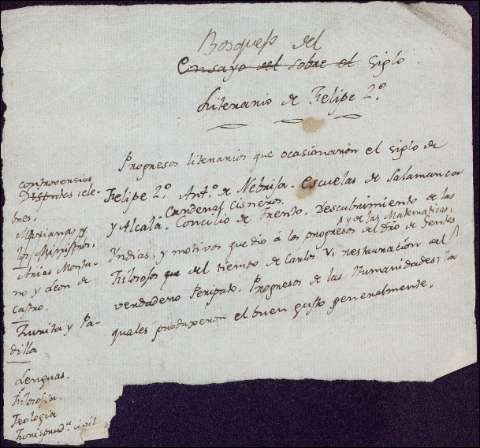 Bosquejo del
Ensayo del sobre el Siglo
Literario de Felipe 2º
Progresos literarios que ocasionaron el siglo de
Felipe 2º. Antº. de Nebrija. Escuelas de Salamanca
y Alcala. Cardenal Cisneros. Concilio de Trento. Descubrimiento de las
Indias, y motivos que dio á los progresos del dro de Gentes
y de las Matematicas.
Filosofos que del tiempo de Carlos V. restauración del
verdadero Peripato. Progresos de las Humanidades: las
quales produxeron el buen gusto generalmente.
controversias
Disputas cele-
bres.
Marianas y
los Ministros.
Arias Monta-
no y Leon de
Castro.
Zurita y Pa-
dilla
Lenguas.
Filosofia.
Teologia